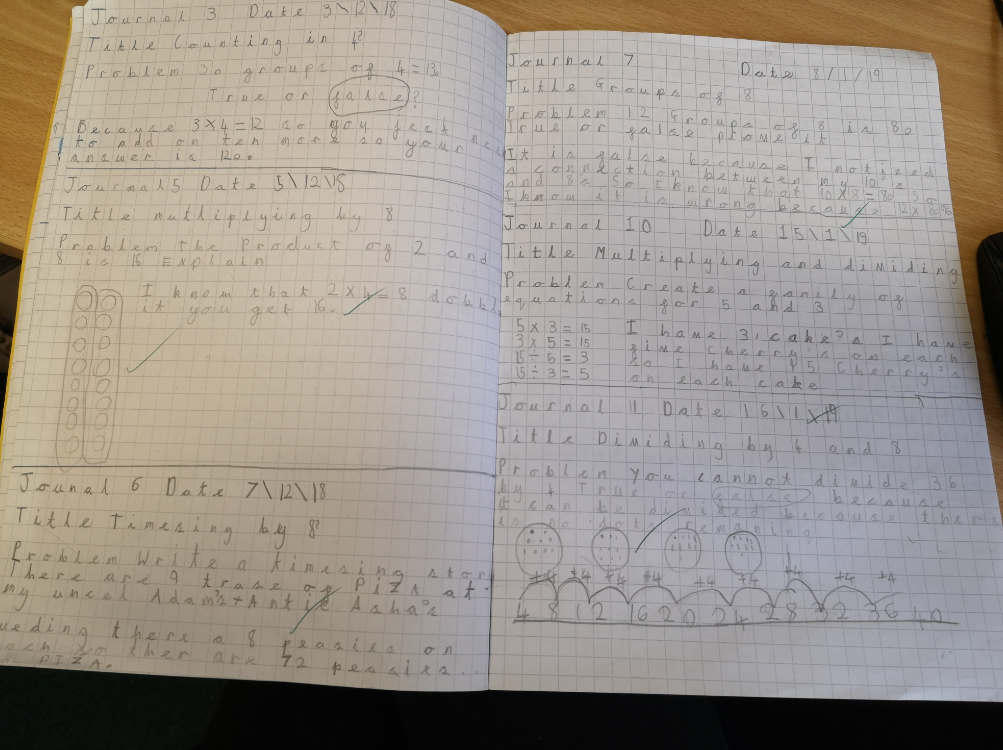 Journal 3 Date 3\12\18
Title Counting in 4?
Problem 30 groups of 4 = 130
True or false?
Because 3×4=12 so you just need
to add on ten more so your
answer is 120.
Journal 5 Date 5\12\18
Title multiplying by 8
Problem the Product of 2 and
8 is 16 Explain
I know that 2×4=8 dobble
it you get 16.
Jounal 6 Date 7\12\18
Title Timesing by 8?
Problem Write a timesing story
There are 9 trase of PIZA at
my uncel Adam's + Antie Asha's
weding there a 8 peasies on
each so ther are 72 peasies.
PIZA.
Journal 7 Date 8/1/19
Title Groups of 8
Problem 12 Groups of 8 is 80
True or false prove it
It is false because I notised
a connection between my 10's
and 8s. So I know that 10×8=80 So
I know it is wrong because 12×8=96
Journal 10 Date 15\1\19
Title Multiplying and dividing
Problem Create a family of
equations for 5 and 3
5×3=15 I have 3 cake's I have
3×5=15 give cherry's on each
15÷5=3 so I have 15 cherry's
15÷3=5 on each cake
Journal 11 Date 16\1\19
Title Dividing by 4 and 8
Problem You cannot divide 36
by 4 True or false because
it can be divided because there
is no dots remaning
+4 +4 +4 +4 +4 +4 +4 +4 +4
4 8 12 16 20 24 28 32 36 40